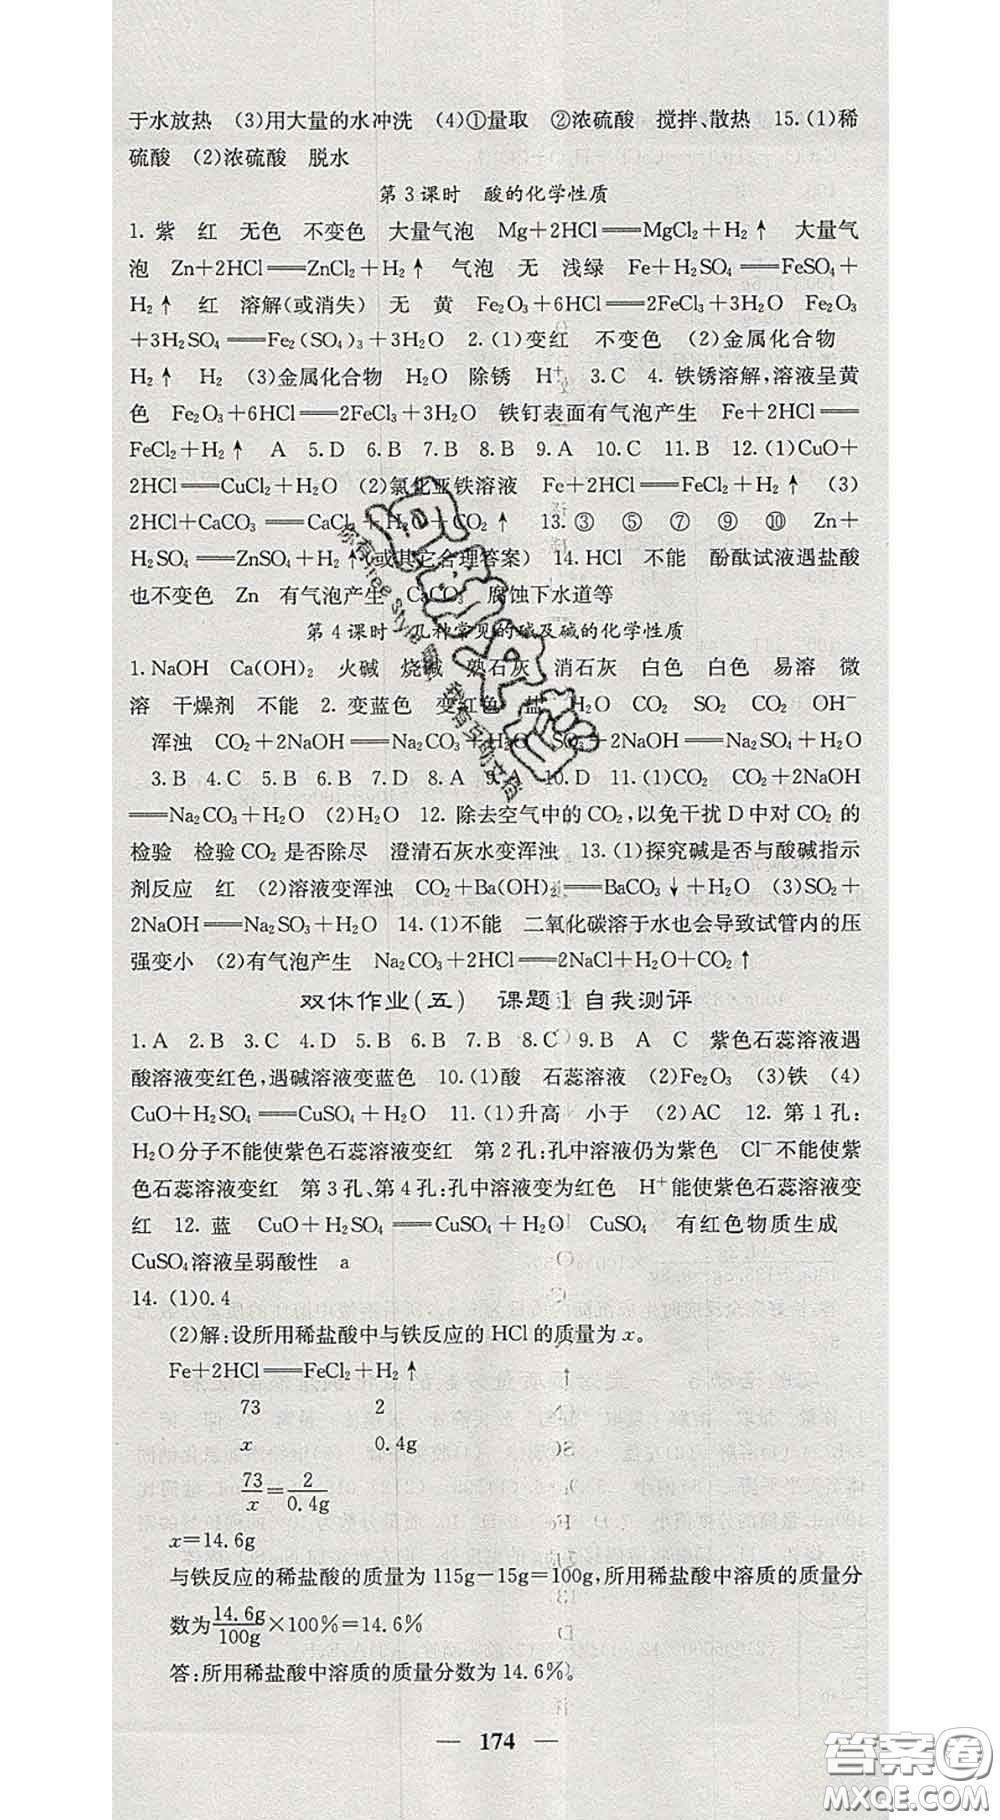 于水放热 (3)用大量的水冲洗 (4)①量取 ②浓硫酸 搅拌、散热 15.(1)稀
硫酸 (2)浓硫酸 脱水
第3课时 酸的化学性质
1. 紫 红 无色 不变色 大量气泡 Mg+2HCl══MgCl₂+H₂↑ 大量气
泡 Zn+2HCl══ZnCl₂+H₂↑ 气泡 无 浅绿 Fe+H₂SO₄══FeSO₄+
H₂↑ 红 溶解(或消失) 无 黄 Fe₂O₃+6HCl══2FeCl₃+3H₂O Fe₂O₃
+3H₂SO₄══Fe₂(SO₄)₃+3H₂O 2.(1)变红 不变色 (2)金属化合物
H₂↑ H₂ (3)金属化合物 H₂O 除锈 H⁺ 3.C 4. 铁锈溶解,溶液呈黄
色 Fe₂O₃+6HCl══2FeCl₃+3H₂O 铁钉表面有气泡产生 Fe+2HCl══
FeCl₂+H₂↑ A 5.D 6.B 7.B 8.B 9.A 10.C 11.B 12.(1)CuO+
2HCl══CuCl₂+H₂O (2)氯化亚铁溶液 Fe+2HCl══FeCl₂+H₂↑ (3)
2HCl+CaCO₃══CaCl₂+H₂O+CO₂↑ 13. ③ ⑤ ⑦ ⑨ ⑩ Zn+
H₂SO₄══ZnSO₄+H₂↑(或其它合理答案) 14.HCl 不能 酚酞试液遇盐酸
也不变色 Zn 有气泡产生 CaCO₃ 腐蚀下水道等
第4课时 几种常见的碱及碱的化学性质
1.NaOH Ca(OH)₂ 火碱 烧碱 熟石灰 消石灰 白色 白色 易溶 微
溶 干燥剂 不能 2. 变蓝色 变红色 盐 H₂O CO₂ SO₂ CO₂ OH⁻
浑浊 CO₂+2NaOH══Na₂CO₃+H₂O SO₃+2NaOH══Na₂SO₄+H₂O
3.B 4.C 5.D 6.D 7.B 8.A 9. 10.D 11.(1)CO₂ CO₂+2NaOH
══Na₂CO₃+H₂O (2)H₂O 12. 除去空气中的CO₂,以免干扰D中对CO₂的
检验 检验CO₂是否除尽 澄清石灰水变浑浊 13.(1)探究碱是否与酸碱指示
剂反应 红 (2)溶液变浑浊 CO₂+Ba(OH)₂══BaCO₃↓+H₂O (3)SO₂+
2NaOH══Na₂SO₃+H₂O 14.(1)不能 二氧化碳溶于水也会导致试管内的压
强变小 (2)有气泡产生 Na₂CO₃+2HCl══2NaCl+H₂O+CO₂↑
双休作业(五) 课题1自我测评
1.A 2.B 3.C 4.D 5.D 6.B 7.B 8.C 9.B A C 紫色石蕊溶液遇
酸溶液变红色,遇碱溶液变蓝色 10.(1)酸 石蕊溶液 (2)Fe₂O₃ (3)铁 (4)
CuO+H₂SO₄══CuSO₄+H₂O 11.(1)升高 小于 (2)AC 12. 第1孔:
H₂O分子不能使紫色石蕊溶液变红 第2孔:孔中溶液仍为紫色 Cl⁻不能使紫
色石蕊溶液变红 第3孔、第4孔:孔中溶液变为红色 H⁺能使紫色石蕊溶液变
红 12. 蓝 CuO+H₂SO₄══CuSO₄+H₂O CuSO₄ 有红色物质生成
CuSO₄溶液呈弱酸性 a
14. (1)0.4
(2)解:设所用稀盐酸中与铁反应的HCl的质量为x。
Fe+2HCl══FeCl₂+H₂↑
73 2
x 0.4g
73/x=2/0.4g
x=14.6g
与铁反应的稀盐酸的质量为115g−15g=100g,所用稀盐酸中溶质的质量分
数为14.6g/100g×100%=14.6%
答:所用稀盐酸中溶质的质量分数为14.6%。
— 174 —
答案圈
MXQE.COM